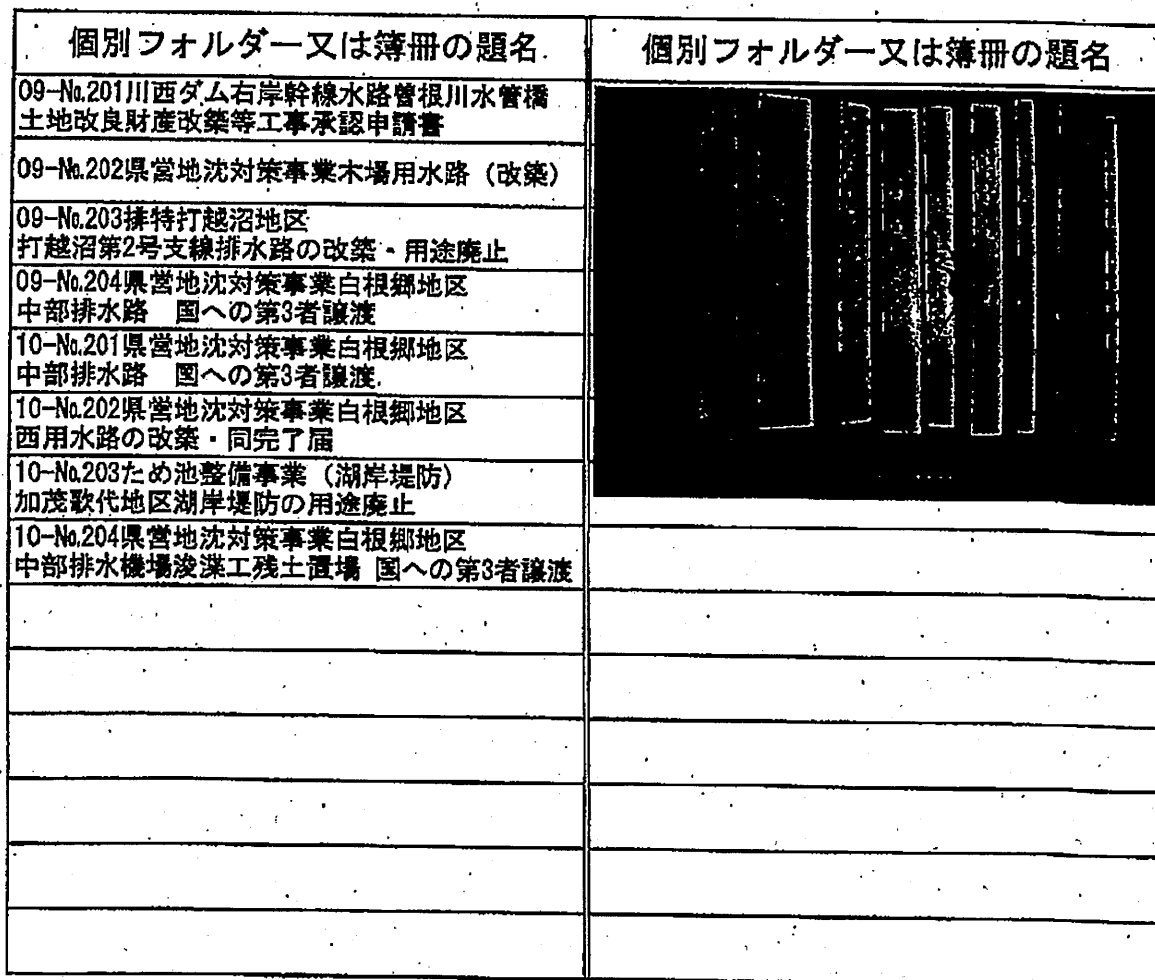 個別フォルダー又は簿冊の題名
09-No.201川西ダム右岸幹線水路曽根川水管橋
土地改良財産改築等工事承認申請書
09-No.202県営地沈対策事業木場用水路（改築）
09-No.203排特打越沼地区
打越沼第2号支線排水路の改築・用途廃止
09-No.204県営地沈対策事業白根郷地区
中部排水路　国への第3者譲渡
10-No.201県営地沈対策事業白根郷地区
中部排水路　国への第3者譲渡
10-No.202県営地沈対策事業白根郷地区
西用水路の改築・同完了届
10-No.203ため池整備事業（湖岸堤防）
加茂歌代地区湖岸堤防の用途廃止
10-No.204県営地沈対策事業白根郷地区
中部排水機場浚渫工残土置場 国への第3者譲渡
個別フォルダー又は簿冊の題名